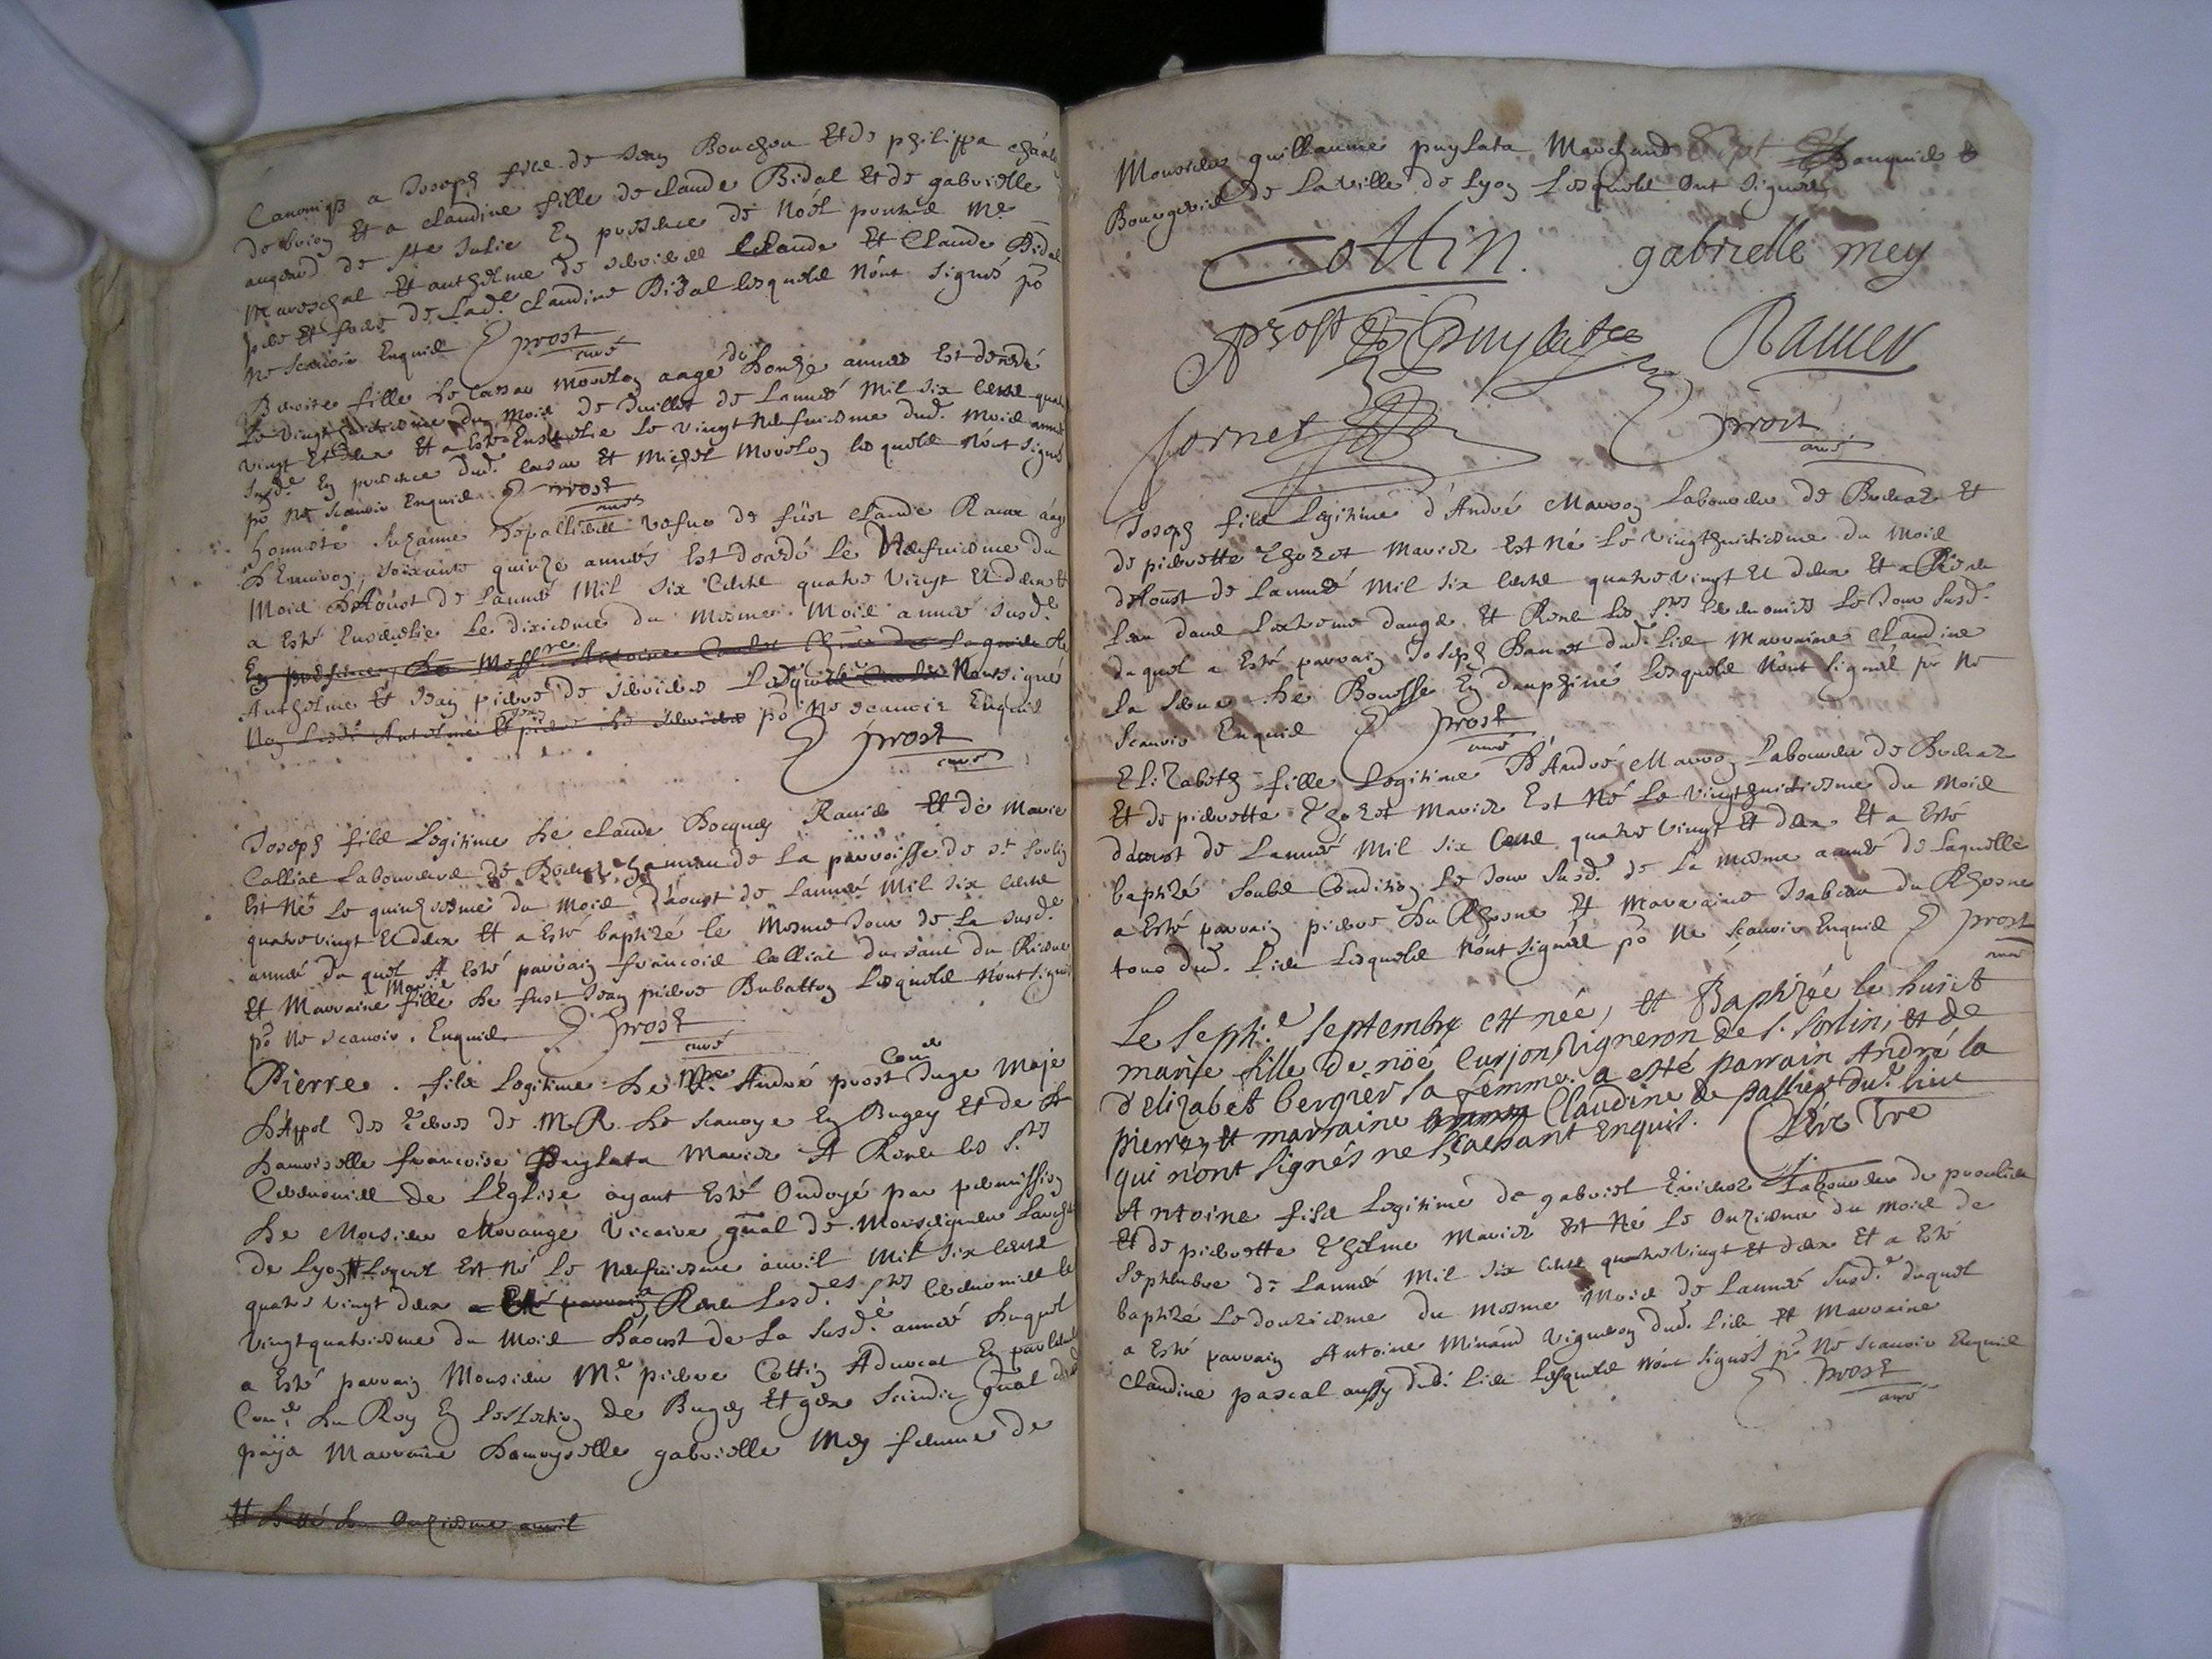 Canoniqs a Joseph fils de Jean Bouchon Et de philippa
de brion Et a claudine fille de claude Bidal Et de gabrielle
de Ste Julie En presence de Noël Me
Mareschal Et anthelme de Claude Et Claude Bidal
pere Et frere de Lad.e claudine Bidal lesquels n'ont signés po
ne scavoir Enquis Prost
curé
Benoite fille de Cesar Morelon aagé de honze années Est decedé
Le vingthuictiesme du Mois de Juillet de L'année Mil six Cents quatre
vingt Et deux Et a Esté Enseuelie Le vingt Neufuiesme dud. Mois année
susd.e En presence dud. Cesar Et Michel Morelon lesquels n'ont signés
po ne scavoir Enquis Prost
curé
honneste Suzanne Depallieres vefue de fust claude
soixante quinze années Est decedé Le Neufuiesme du
Mois d'Aoust de L'année Mil six Cents quatre vingt Et deux Et
a Esté Enseuelie Le dixiesme du Mesme Mois année susd.e
En presence de Messre Antoine
Anthelme Et Jean pierre de Lesquels N'ont signé
po ne scavoir Enquis
Prost
curé
Joseph fils Legitime de claude Bocquey Et de Marie
Calliat Laboureurs de de La parroisse de St Sorlin
Est Né Le quinziesme du Mois d'aoust de L'année Mil six cents
quatre vingt Et deux Et a Esté baptizé le Mesme Jour de La susd.e
année du quel A Esté parrain francois Calliat du
Et Marraine Marie fille de fust Jean pierre Lesquels n'ont signés
po ne scavoir Enquis Prost
curé
Pierre fils Legitime de Mre André prost Con.er Juge Maje
d'Appel des Terres de M.R. de Scavoye En Bugey Et de
damoiselle francoise Puylata Mariez A Receu les Stes
Ceremonies de L'Eglise ayant Esté Ondoyé par permission
de Monsieur Morange Vicaire gnal de Monseigneur L'arch
de Lyon Lequel Est Né Le Neufuiesme avril Mil six cents
quatre vingt deux a Esté parrain a Receu Lesd.es Stes Ceremonies le
vingtquatriesme du Mois d'aoust de La susd.e année duquel
a Esté parrain Monsieur Me pierre Cottin Aduocat En parlem
Con.er du Roy En L'eslection de Bugey Et gex Scindic gnal
païs Marraine damoyselle gabrielle Mey femme de
Et onziesme avril
Monsieur guillaume puylata Marchand Banquier Et
Bourgeois de La ville de Lyon Lesquels ont signés
Cottin gabrielle mey
Prost Puylata
Prost
curé
Joseph fils Legitime d'André Marron Laboureur de Et
de pierrette Thozet Mariez Est Né Le vingthuitiesme du Mois
d'Aoust de L'année Mil six Cents quatre vingt Et deux Et a Receu
L'eau dans L'extreme danger Et Receu Les Stes Ceremonies Le Jour susd.
duquel a Esté parrain Joseph dud. Lieu Marraine claudine
La En dauphiné Lesquels n'ont signés po ne
scavoir Enquis Prost
curé
Elizabeth fille Legitime d'André Marron Laboureur de
Et de pierrette Thozet Mariez Est Né Le vingthuitiesme du Mois
d'aoust de L'année Mil six Cents quatre vingt Et deux Et a Esté
baptizé soubs Condition Le Jour susd. de La mesme année de Laquelle
a Esté parrain pierre du Rhosne Et Marraine Isabeau du Rhosne
tous dud. Lieu Lesquels n'ont signés po ne scavoir Enquis Prost
curé
Le sept.e septembre est née, et Baptizée le huist
marie fille de nöé Curjon vigneron de S. Sorlin, et de
d'elizabet bergier sa femme. a esté parrain André la
pierre, et marraine Claudine de pallier du.t lieu
qui n'ont signés ne scachant enquis.
Antoine fils Legitime de gabriel Laboureur de
Et de pierrette Mariez Est Né Le Onziesme du Mois de
Septembre de L'année Mil six Cents quatre vingt Et deux Et a Esté
baptizé Le douziesme du Mesme Mois de L'année susd.e duquel
a Esté parrain Antoine Minand vigneron dud. Lieu Et Marraine
Claudine pascal aussy dud. Lieu Lesquels n'ont signés po ne scavoir Enquis
Prost
curé